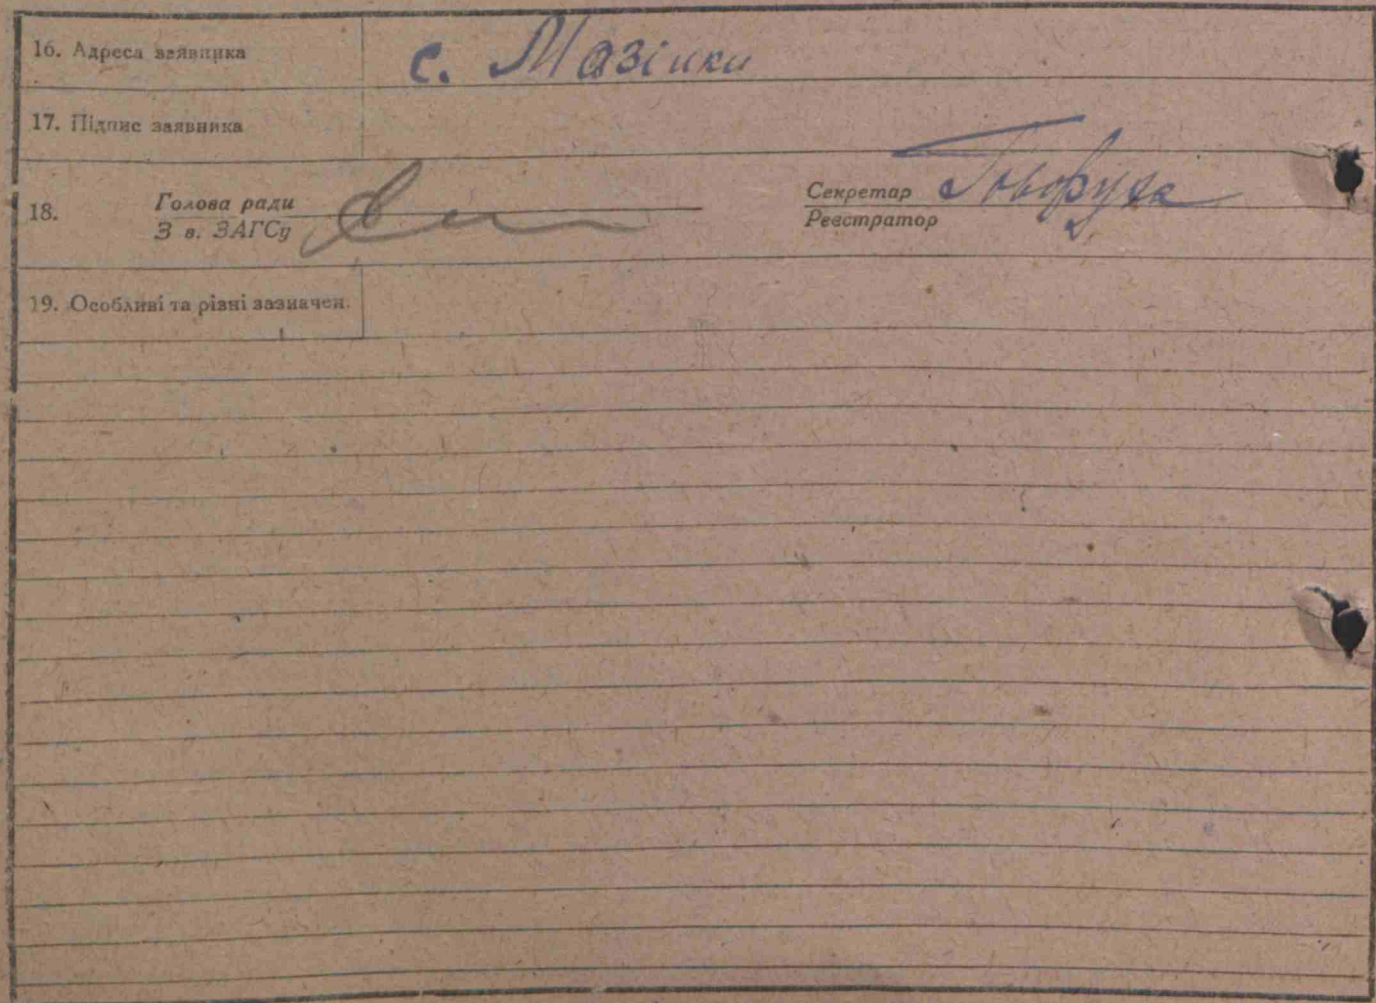 16. Адреса заявника с. Мазінки
17. Підпис заявника
18. Голова ради Секретар
З в. ЗАГСу Реєстратор
19. Особливі та різні зазначен.